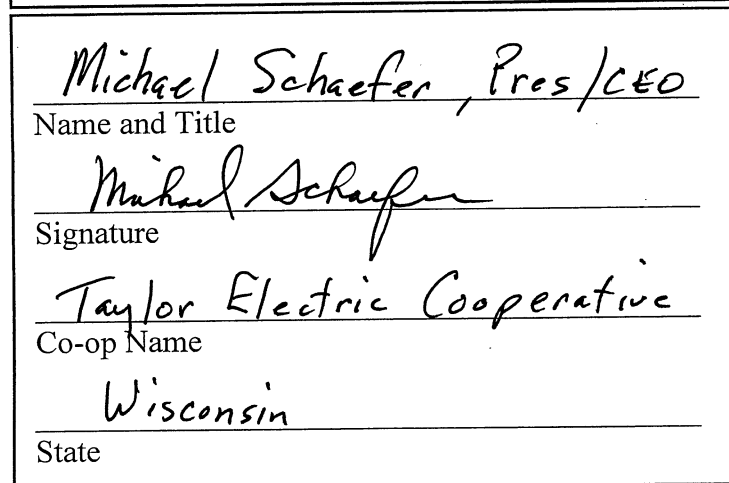 Michael Schaefer, Pres/CEO
Name and Title
Michael Schaefer
Signature
Taylor Electric Cooperative
Co-op Name
Wisconsin
State